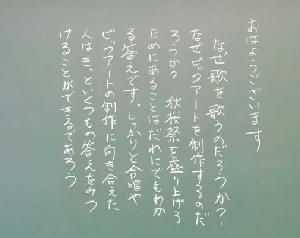 おはようございます
なぜ歌を歌うのだろうか?
なぜビッグアートを制作するのだ
ろうか? 秋桜祭を盛り上げる
ためにあることはだれにでもわか
る答えです。しっかりと合唱や
ビッグアートの制作に向き合えた
人はきっといくつもの答えをみつ
けることができるであろう